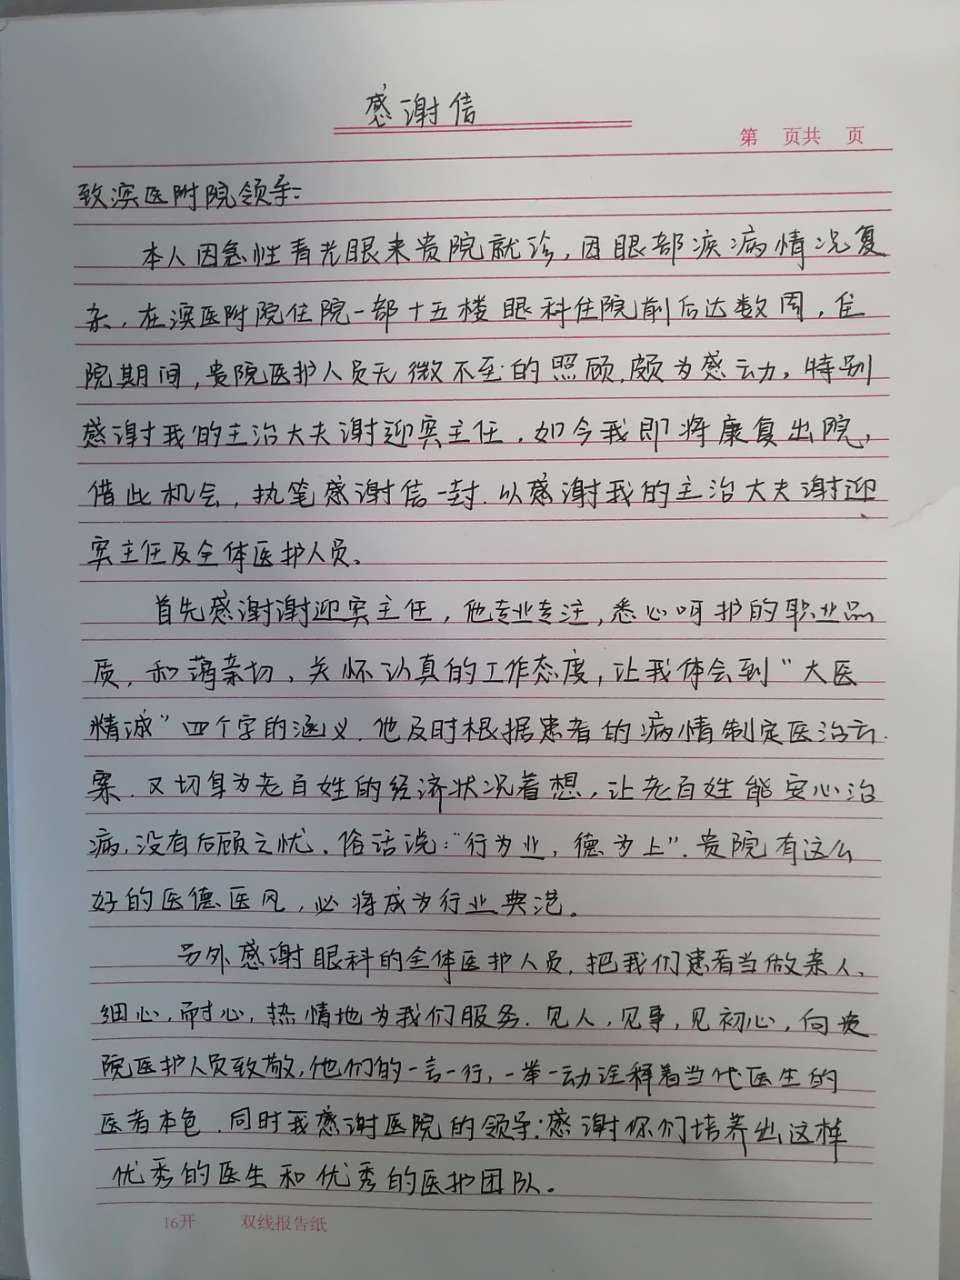 感谢信
第 页共 页
致滨医附院领导:
本人因急性青光眼来贵院就诊,因眼部疾病情况复
杂,在滨医附院住院一部十五楼眼科住院前后达数周,住
院期间,贵院医护人员无微不至的照顾,颇为感动。特别
感谢我的主治大夫谢迎宾主任,如今我即将康复出院,
借此机会,执笔感谢信一封.以感谢我的主治大夫谢迎
宾主任及全体医护人员。
首先感谢谢迎宾主任,他专业专注,悉心呵护的职业品
质,和蔼亲切,关怀认真的工作态度,让我体会到“大医
精诚”四个字的涵义.他及时根据患者的病情制定医治方
案.又切身为老百姓的经济状况着想,让老百姓能安心治
病,没有后顾之忧.俗话说:“行为业,德为上”.贵院有这么
好的医德医风,必将成为行业典范。
另外感谢眼科的全体医护人员,把我们患者当做亲人、
细心,耐心,热情地为我们服务.见人,见事,见初心,向贵
院医护人员致敬,他们的一言一行,一举一动诠释着当代医生的
医者本色.同时我感谢医院的领导:感谢你们培养出这样
优秀的医生和优秀的医护团队。
16开 双线报告纸